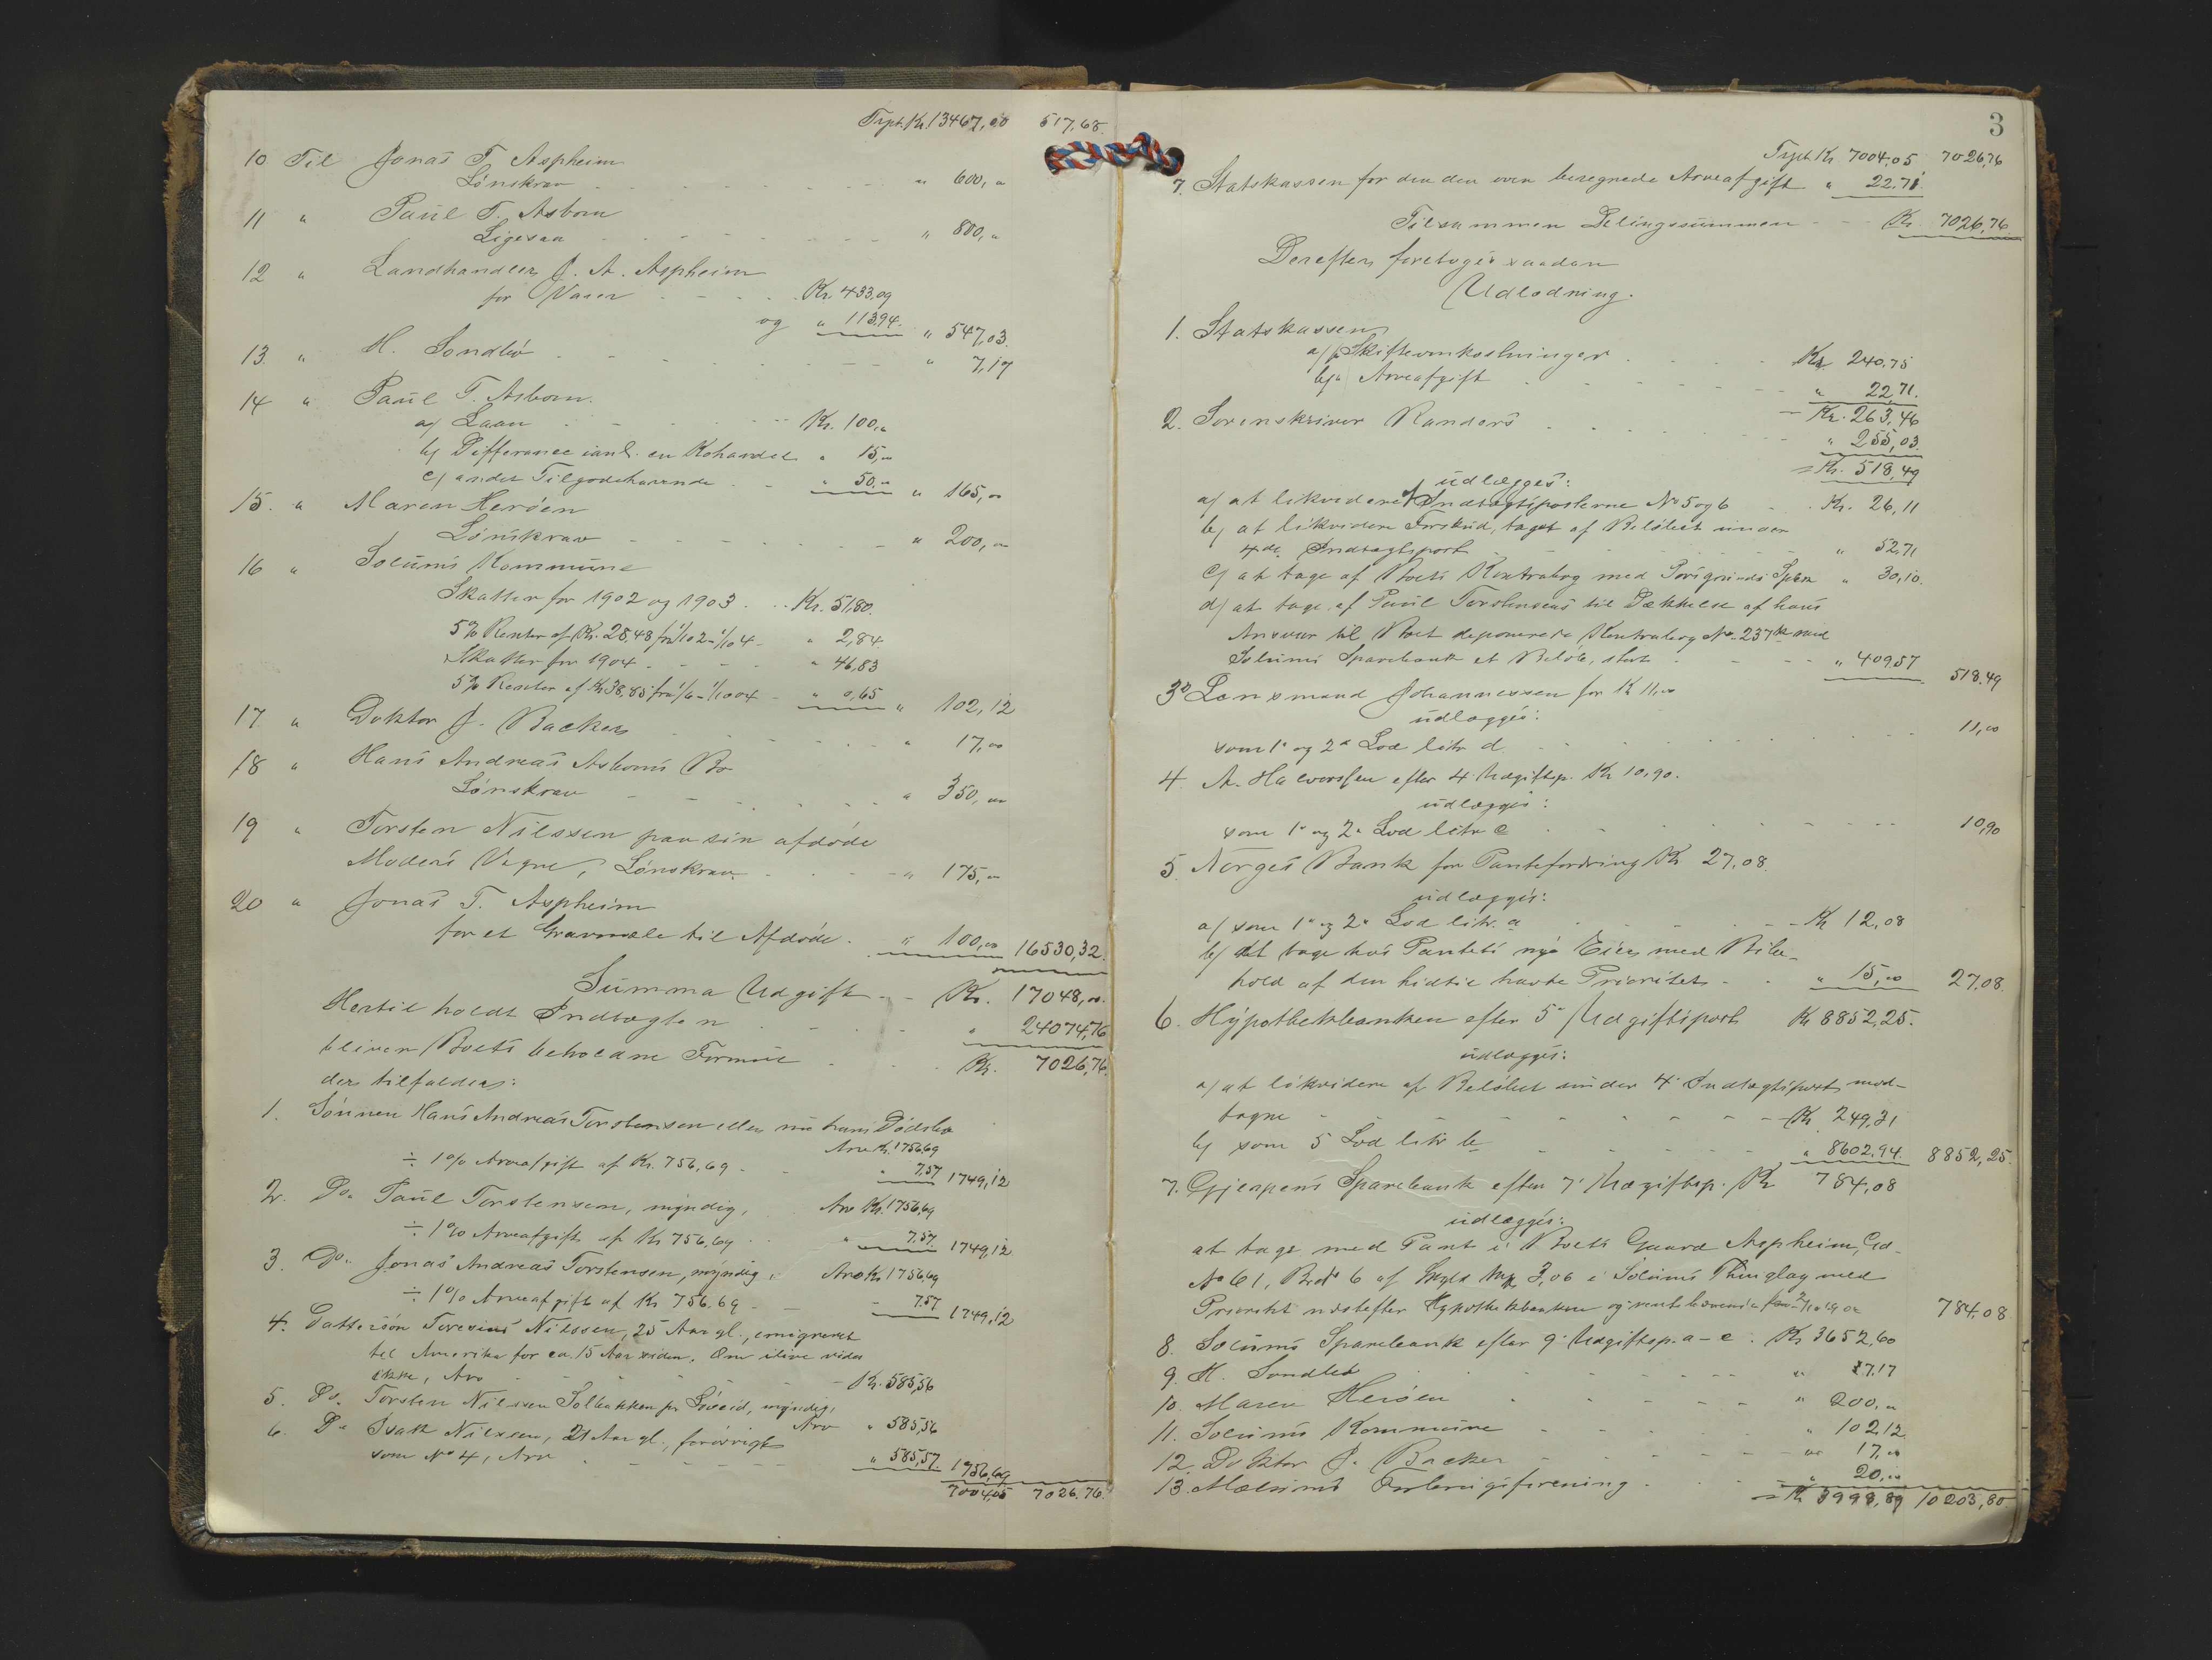 Trpt. Kr. 13467,00 517,68.
10 Til Jonas T. Aspheim
Lønskrav " 600,"
11 " Paul T. Asbom
Ligesaa " 800,"
12 " Landhandler J. A. Aspheim
for Varer Kr. 433.09
og " 113.94. " 547,03.
13 " H. Sondbø " 7,17
14 " Paul T. Asbom.
a) Laan Kr. 100,"
b) Differance ianl. en Kohandel " 15,"
c) andet Tilgodehavende " 50." " 165,"
15. " Maren Herøen
Lønskrav " 200,"
16 " Solums Kommune
Skatter for 1902 og 1903 Kr. 51,80.
5% Renter af Kr. 28,48 fra 1/10 2 - 1/10 4 " 2,84.
Skatter for 1904 " 46,83
5% Renter af Kr 38,85 fra 1/6 - 1/10 04 " 0,65 " 102,12
17 " Doktor J. Backer " 17,00
18 " Hans Andreas Asboms Bo
Lønskrav " 350,"
19 " Torsten Nilssen paa sin afdøde
Moders Vegne, Lønskrav. " 175,"
20 " Jonas T. Aspheim
for et Gravmæle til Afdøde. " 100,00 16530,32.
Summa Udgift Kr. 17048,00.
Hertil holdt Indtægten " 24074,76
bliver Boets beholdne Formue Kr. 7026,76.
der tilfalder:
1. Sønnen Hans Andreas Torstensen eller nu hans Dødsbo
Arv Kr. 1756,69
÷ 1% Arveafgift af Kr. 756,69 " 7,57 1749,12
2. Do. Paul Torstensen, myndig, Arv Kr. 1756,69
÷ 1% Arveafgift af Kr 756,69 " 7,57. 1749,12
3. Do. Jonas Andreas Torstensen, myndig, Arv Kr 1756,69
÷ 1% Arveafgift af Kr 756.69 7.57 1749,12
4. Dattersøn Toresius Nilssen, 25 Aar gl., emigreret
til Amerika for ca. 15 Aar siden. Om ilive vides
ikke, Arv Kr. 585,56
5. Do. Torsten Nilssen Solbakken pr Løveid, myndig,
Arv " 585,56
6. Do Isak Nilssen, 21 Aar gl., forøvrigt
som No 4, Arv " 585,57. 1756,69
7004,05 7026.76.
3
Trpt. Kr 7004,05 7026,76
7. Statskassen for den den oven beregnede Arveafgift " 22.71
Tilsammen Delingssummen Kr. 7026,76.
Derefter foretoges saadan
Udlodning.
1. Statskassen
a) f. Skifteomkostninger Kr 240,75
b) " Arveafgift " 22,71.
Kr. 263,46
2. Sorenskriver Randers " 255,03.
= Kr. 518,49
udlægges:
a) at likvidere af Indtægtsposterne No 5 og 6 Kr. 26,11
b) at likvidere Forskud, taget af Beløbet under
4de Indtægtspost " 52,71
c) at tage af Boets Kontrabog med Porsgrunds Spbk " 30,10.
d) at tage af Paul Torstensens til Dækkelse af hans
Ansvar til Boet deponerede Kontrabog No. 237 med
Solums Sparebank et Beløb, stort " 409,57 518.49
3. Lensmand Johannessen for Kr 11,00
udlægges:
som 1. og 2. Lod litr d. 11,00
4. A. Halvorsen efter 4. Udgiftsp. Kr 10,90.
udlægges:
som 1. og 2. Lod litr c 10,90
5. Norges Bank for Pantefordring Kr 27,08.
udlægges:
a) som 1. og 2. Lod litr. a Kr 12,08
b) at tage hos Pantets nye Eier med Bibe-
hold af den hidtil havte Prioritet " 15,00 27,08.
6. Hypothekbanken efter 5. Udgiftspost Kr 8852,25.
udlægges:
a) at likvidere af Beløbet under 4. Indtægtspost mod-
tagne Kr 249,31
b) som 5 Lod litr b " 8602,94. 8852,25.
7. Gjerpens Sparebank efter 7. Udgiftsp. Kr 784,08
udlægges:
at tage med Pant i Boets Gaard Aspheim, Gd-
No 61, Brno 6 af Skyld Mk 3,06 i Solums Thinglag med
Prioritet næstefter Hypothekbanken og rentebærende fra 784,08
8. Solums Sparebank efter 9. Udgiftsp. a - c. Kr 3652,60
9. H. Sondbø " 7,17
10. Maren Herøen " 200,"
11. Solums Kommune " 102,12
12. Doktor J. Backer " 17,00
13. Mælums Forbrugsforening " 20,00
= Kr 3998,89 10203,80.